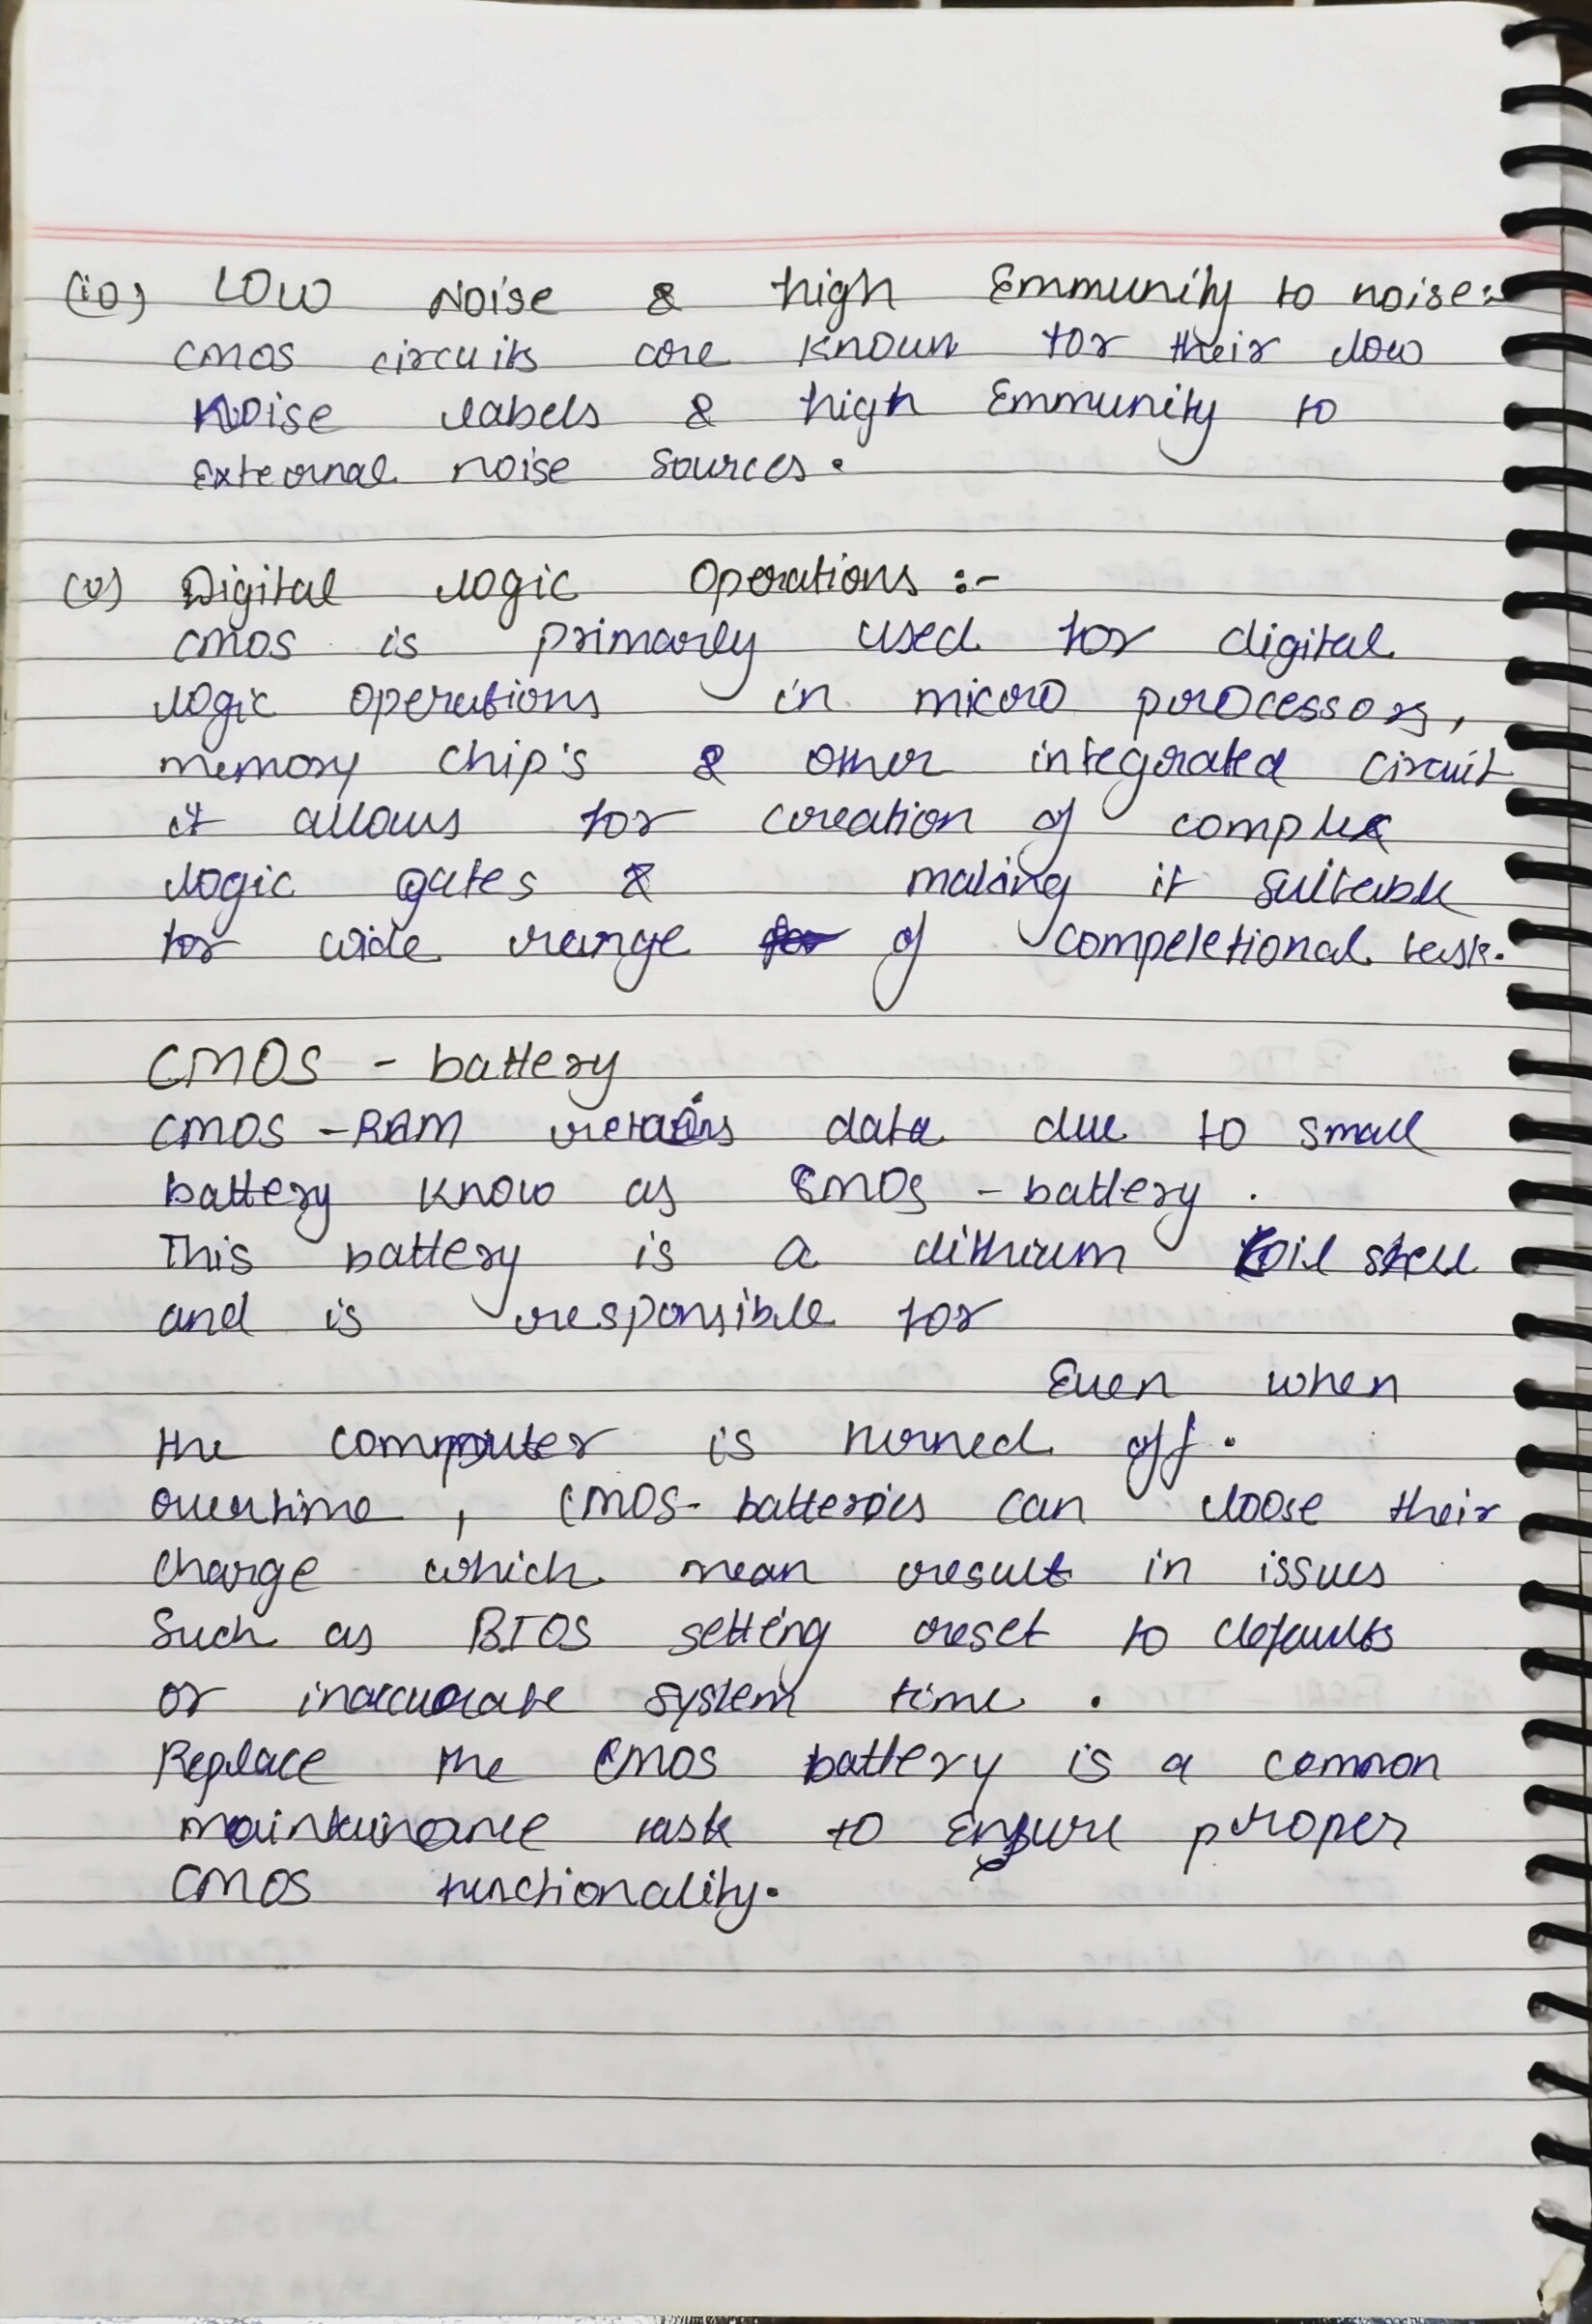 (iv) Low Noise & high Emmunity to noise:-
CMOS circuits are known for their low
Noise labels & high Emmunity to
External noise sources.
(v) Digital logic Operations :-
CMOS is primarly used for digital
logic operations in micro processors,
memory chip's & other integrated circuit
it allows for creation of complex
logic gates & making it suitable
for wide range of competetional task.
CMOS - battery
CMOS - RAM retains data due to small
battery know as CMOS - battery .
This battery is a lithium coil
and is responsible for
Even when
the computer is turned off.
overtime , CMOS- batteries can loose their
charge which mean result in issues
Such as BIOS setting reset to defaults
or inaccurate system time .
Replace the CMOS battery is a common
maintainance task to Ensure proper
CMOS functionality.